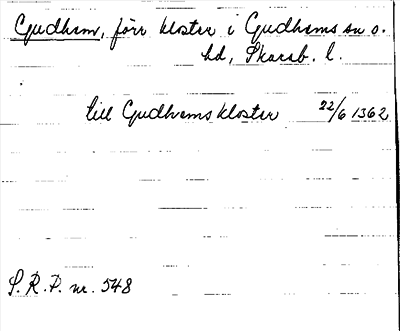 Gudhem, förr kloster i Gudhems sn o.
hd, Skarab. l.
till Gudhems kloster 22/6 1362
S.R.P. nr. 548